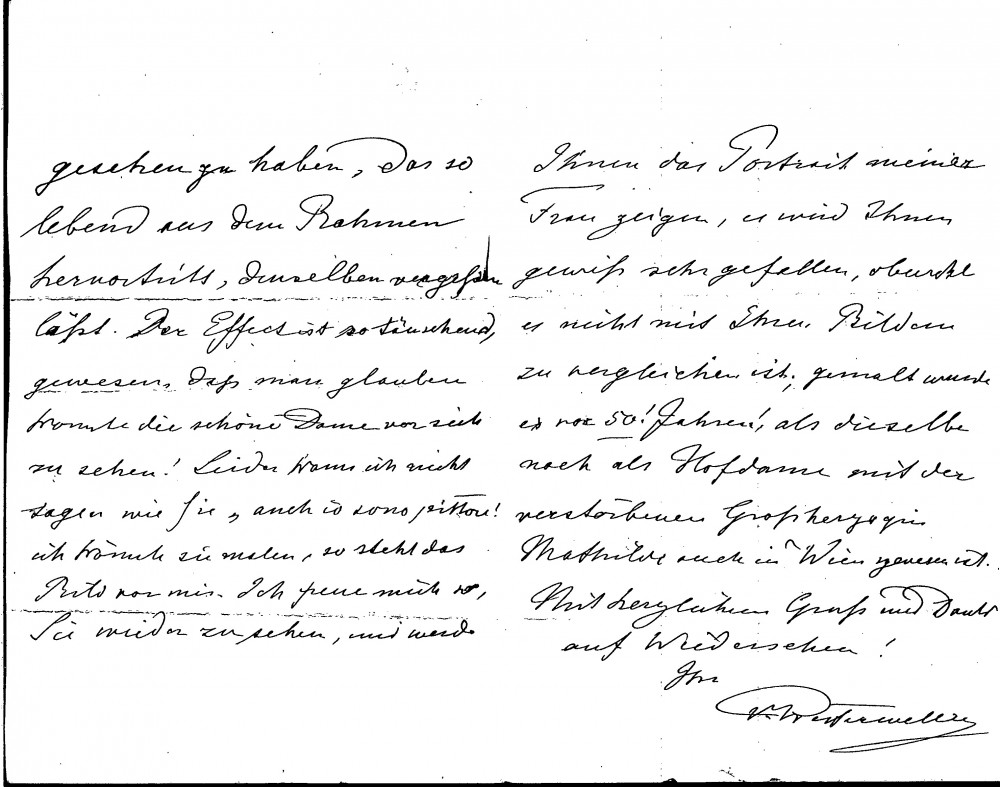 gesehen zu haben, das so
lebend aus dem Rahmen
hervortritt, denselben vergessen
läßt. Der Effect ist so täuschend,
gewesen, daß man glauben
konnte die schöne Dame vor sich
zu sehen! Leider kann ich nicht
sagen wie Sie „auch io sono pittore!
ich könnte sie malen, so steht das
Bild vor mir. Ich freue mich so,
Sie wieder zu sehen, und werde
Ihnen das Portrait meiner
Frau zeigen, es wird Ihnen
gewiß sehr gefallen, obwohl
es nicht mit Ihren Bildern
zu vergleichen ist; gemalt wurde
es vor 50! Jahren!, als dieselbe
noch als Hofdame mit der
verstorbenen Großherzogin
Mathilde auch in Wien gewesen ist.
Mit herzlichem Gruß und Dank
auf Wiedersehen!
Ihr